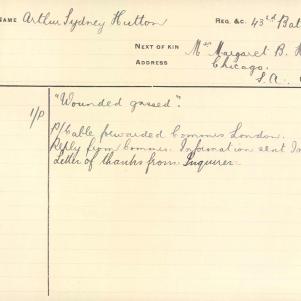 NAME Arthur Sydney Hutton REG. &C. 43rd Bat
NEXT OF KIN Mrs Margaret B. H
ADDRESS Chicago.
S.A.
"Wounded gassed".
1/P
P/Cable forwarded Commrs London.
Reply from Commrs. Information sent In
Letter of thanks from Inquirer